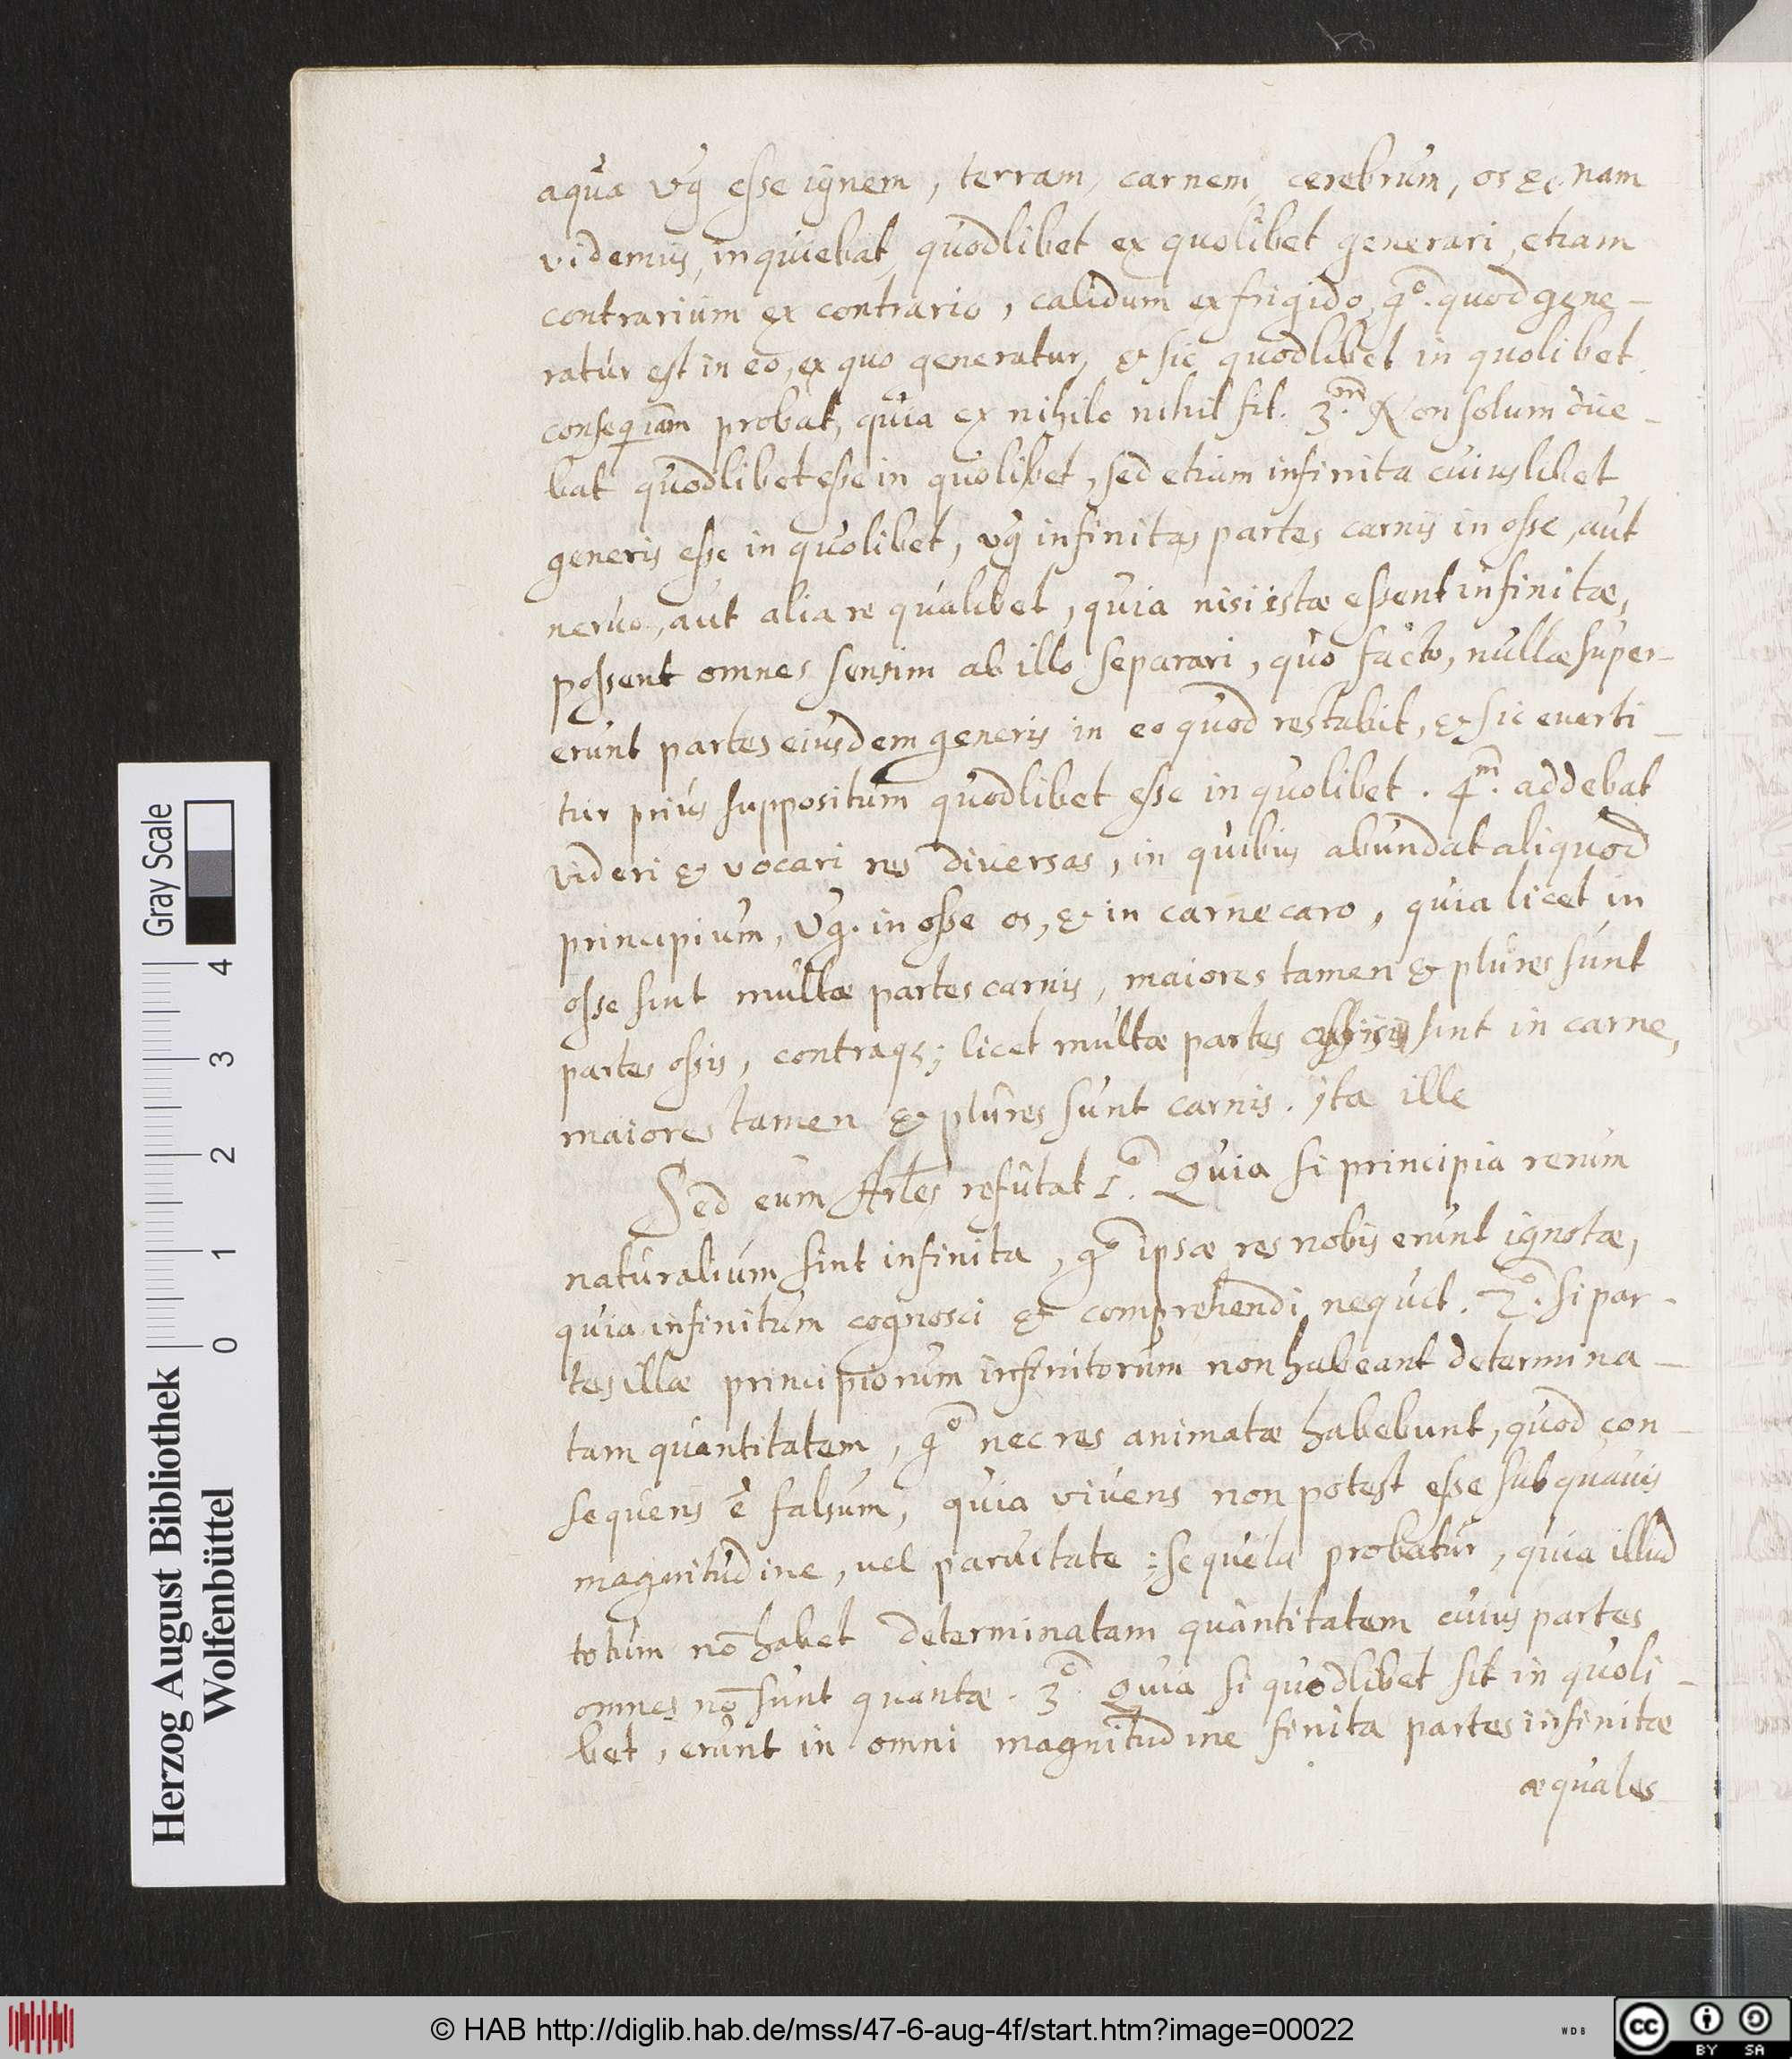 aqua vg esse ignem, terram, carnem, cerebrum, os &c. nam
videmus, inquiebat, quodlibet ex quolibet generari, etiam
contrarium ex contrario, calidum ex frigido, gᵒ. quod gene-
ratur est in eo, ex quo generatur, & sic quodlibet in quolibet.
conseqiam probat, quia ex nihilo nihil fit. 3.ᵐ Non solum dice-
bat quodlibet esse in quolibet, sed etiam infinita cuiuslibet
generis esse in quolibet, vg infinitas partes carnis in osse, aut
neruo, aut alia re qualibet, quia nisi istæ essent infinitæ,
possent omnes sensim ab illo separari, quo facto, nullæ super-
erunt partes eiusdem generis in eo quod restabit, & sic euerti-
tur prius suppositum quodlibet esse in quolibet. 4.ᵐ addebat
videri & vocari res diversas, in quibus abundat aliquod
principium, vg. in osse os, & in carne caro, quia licet in
osse sint multæ partes carnis, maiores tamen & plures sunt
partes ossis, contraqɜ; licet multæ partes ossis sint in carne,
maiores tamen & plures sunt carnis. ita ille
Sed eum Arles refutat 1.ᵒ Quia si principia rerum
naturalium sint infinita, gᵒ ipsæ res nobis erunt ignotæ,
quia infinitum cognosci & comprehendi nequit. 2.ᵒ si par-
tes illæ principiorum infinitorum non habeant determina-
tam quantitatem, gᵒ nec res animatæ habebunt, quod con-
sequens ē falsum, quia vivens non potest esse sub quauis
magnitudine, vel paruitate; sequela probatur, quia illud
totum nō habet determinatam quantitatem cuius partes
omnes nō sunt quantæ. 3.ᵒ Quia si quodlibet sit in quoli-
bet, erunt in omni magnitudine finita partes infinitæ
æquales
Gray Scale
0 1 2 3 4
Herzog August Bibliothek
Wolfenbüttel
© HAB http://diglib.hab.de/mss/47-6-aug-4f/start.htm?image=00022
WDB
cc BY SA